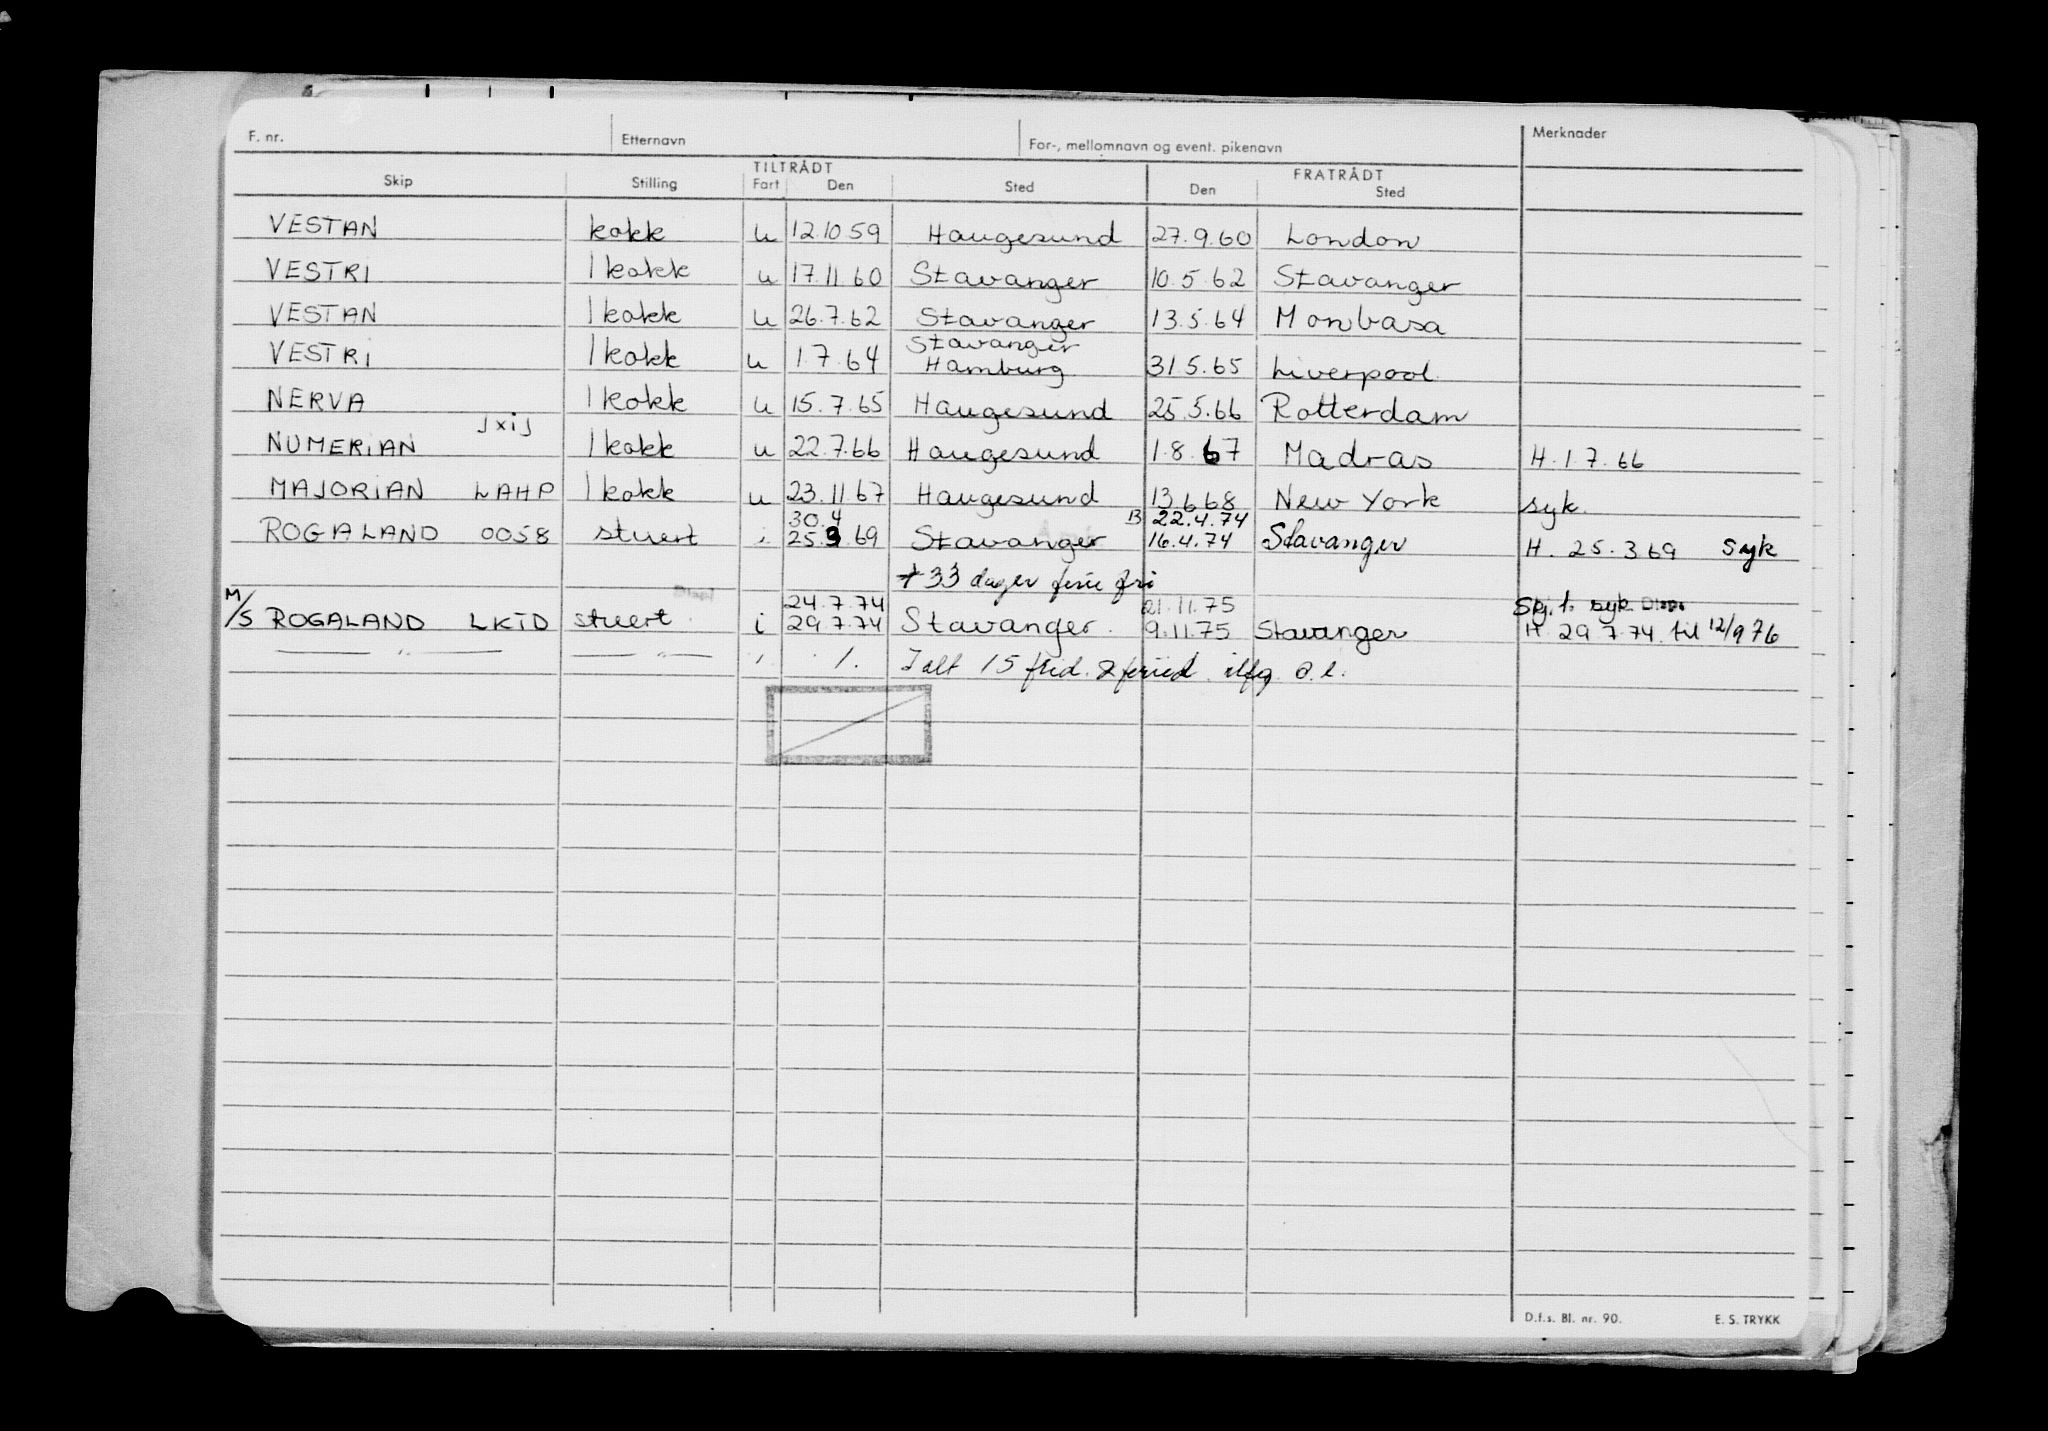 F. nr. Etternavn For-, mellomnavn og event. pikenavn Merknader
TILTRÅDT FRATRÅDT
Skip Stilling Fart Den Sted Den Sted
VESTAN kokk u 12.10 59 Haugesund 27.9.60 London
VESTRI 1 kokk u 17.11 60 Stavanger 10.5.62 Stavanger
VESTAN 1 kokk u 26.7.62 Stavanger 13.5.64 Monbasa
Stavanger
VESTRI 1 kokk u 1.7.64 Hamburg 31.5.65 Liverpool
NERVA 1 kokk u 15.7.65 Haugesund 25.5.66 Rotterdam
JXIJ
NUMERIAN 1 kokk u 22.7.66 Haugesund 1.8.67 Madras H.1.7.66
MAJORIAN LAHP 1 kokk u 23.11 67 Haugesund 13.6.68 New York syk.
30.4 B 22.4.74
ROGALAND 0058 stuert i 25.3.69 Stavanger 16.4.74 Stavanger H. 25.3.69 Syk
+ 33 dager ferie fri
24.7.74 21.11.75 Spj. l. syk
M/S ROGALAND LKTD stuert i 29.7.74 Stavanger. 9.11.75 Stavanger H. 29.7.74 til 12/9 76
— " — — " — , 1. I alt 15 frid. & feried. iflg. o.l.
D.f.s. Bl. nr. 90. E. S. TRYKK